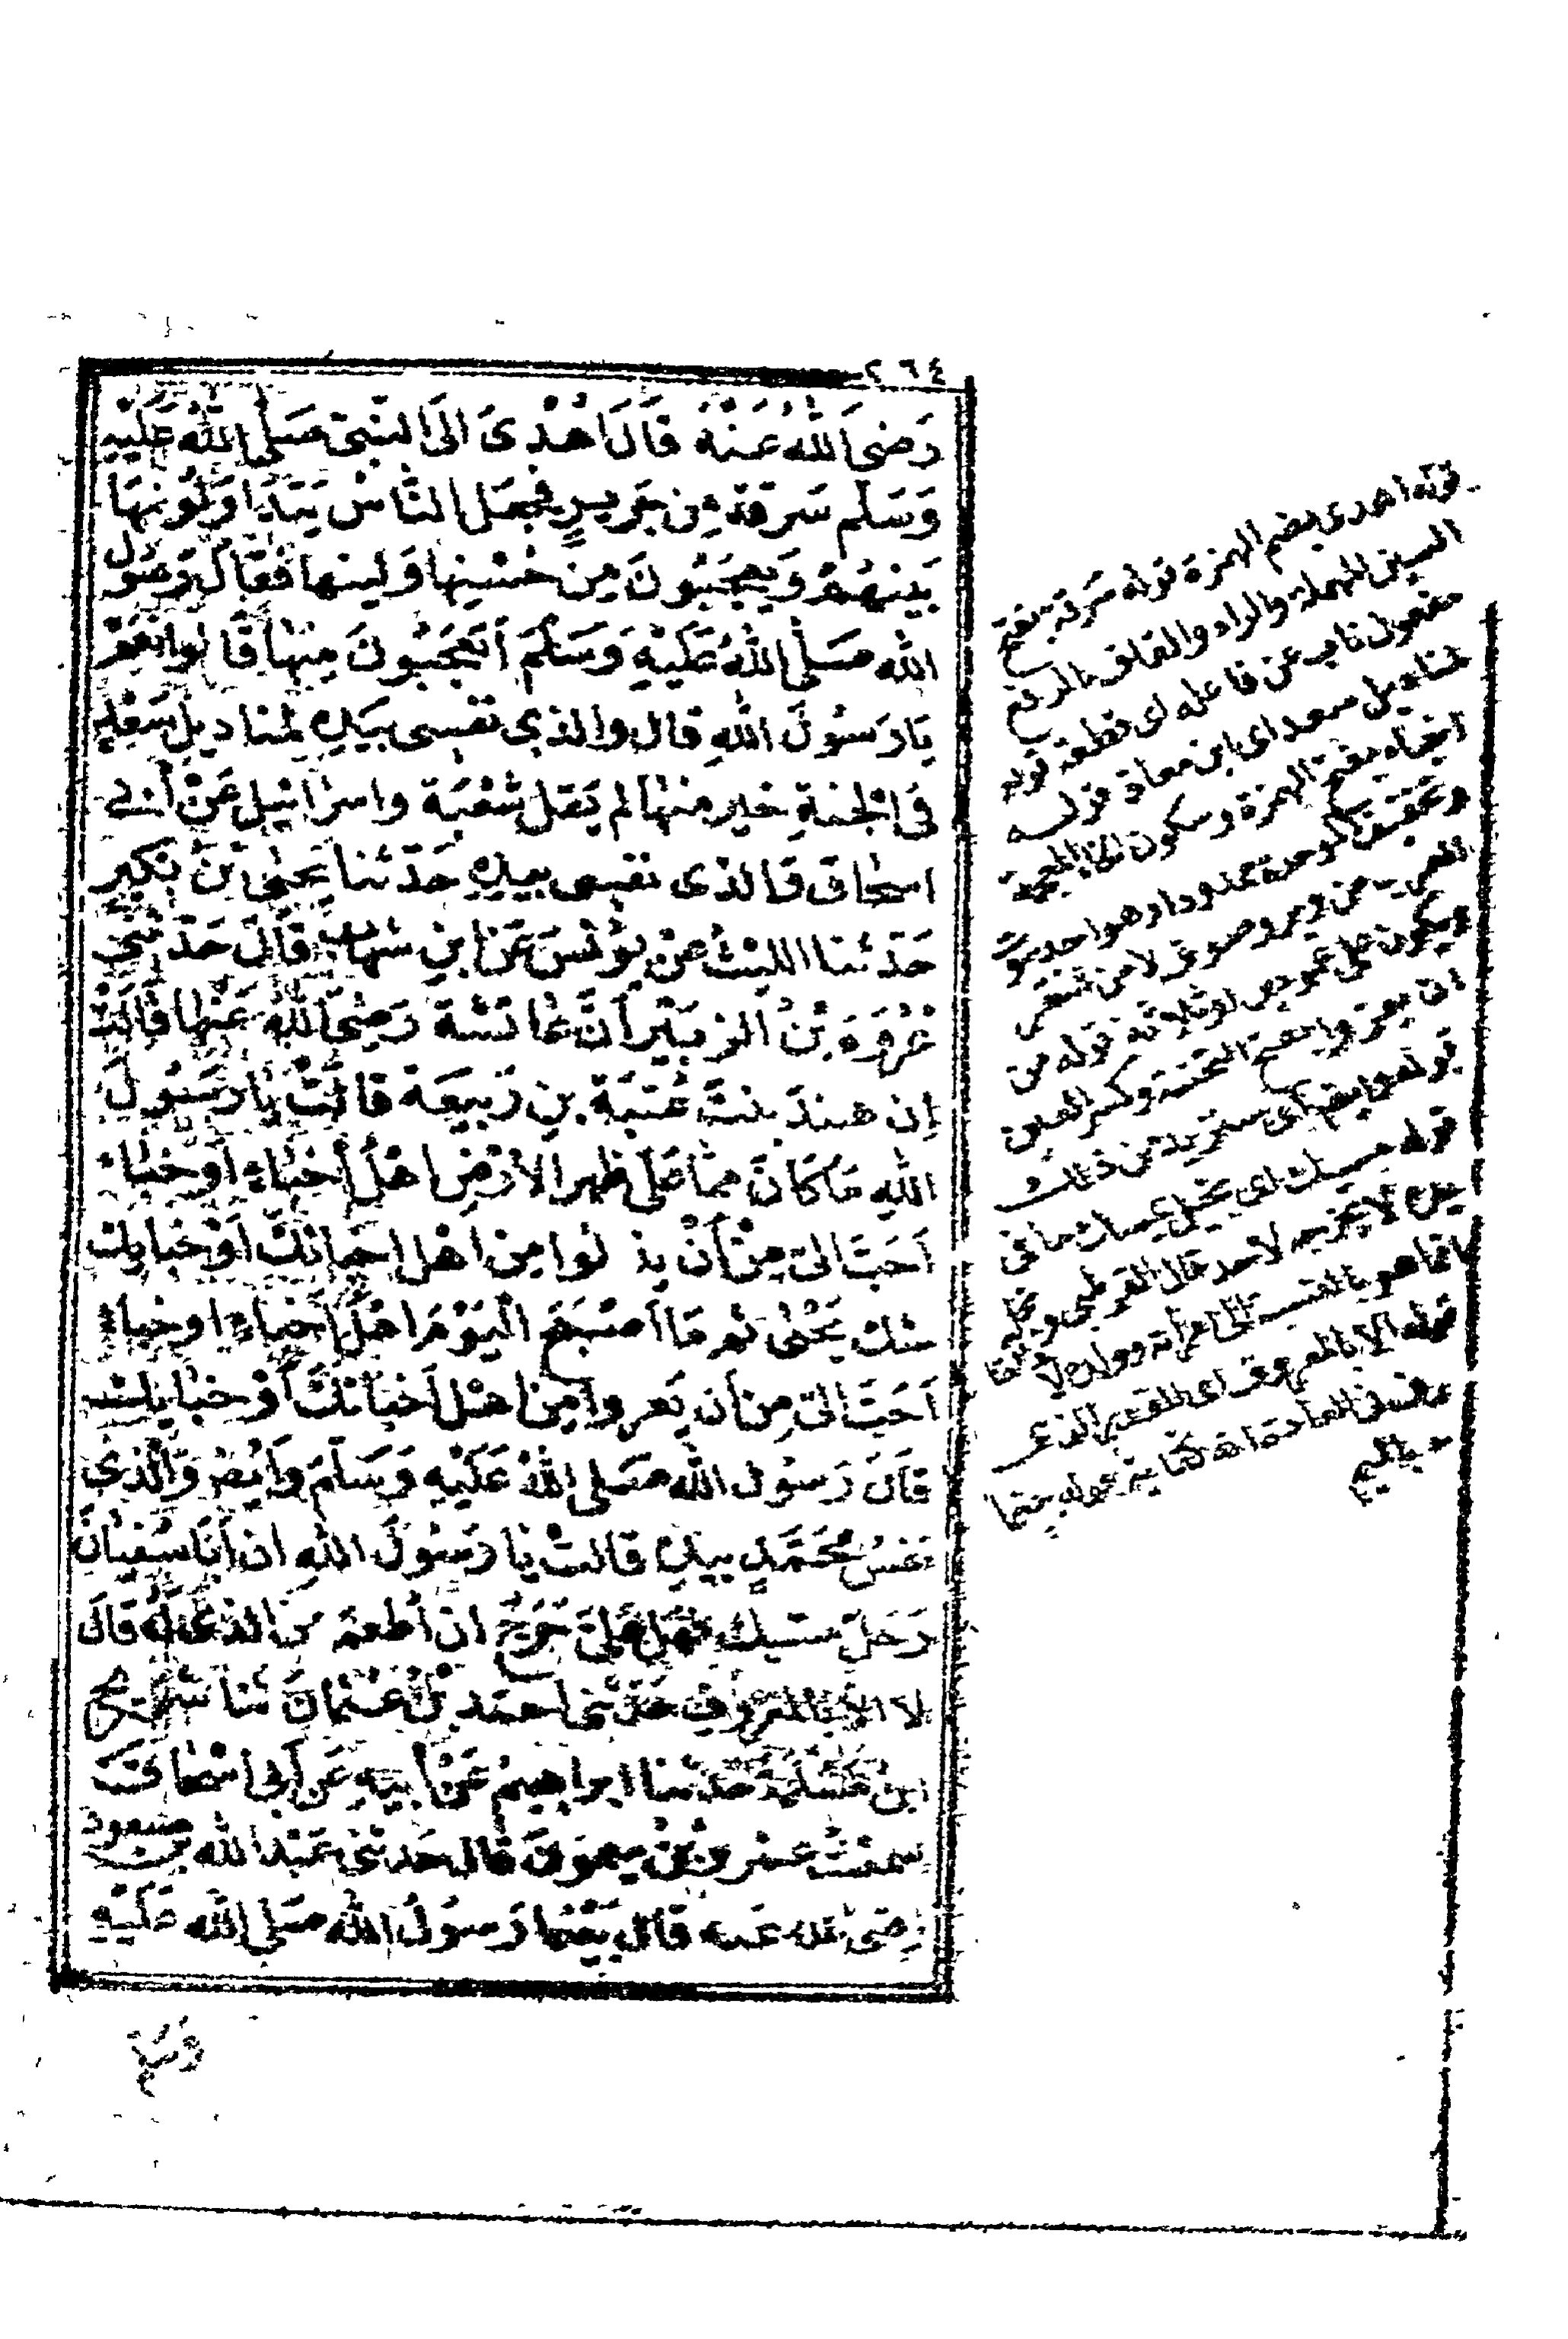 ٢٦٤
رَضىَ اللهُ عَنْهُ قَالَ اُهْدِىَ الَى النَّبىّ صَلى اللهُ عَلَيْهِ
وَسَلم سَرقة مِن حَريرٍ فجعَل النَّاسُ يَتَدَاوَلُونهَا
بَينهُمْ وَيعجَبُونَ مِن حُسْنِها وَلينها فَقَالَ رَسُول
الله صَلى اللهُ عَلَيْهِ وَسَلمَ أتعْجَبُونَ مِنْهَا قَالوا نَعَمْ
يَا رَسُولَ اللهِ قال والذي نفسى بيَدِهِ لمناديلُ سَعْدٍ
فى الجنةِ خير منها لم يَقل شعْبَة واسرائيل عَنْ أبى
اسحاق وَالذى نفسى بيدِهِ حَدّثنا يَحيىٰ بْنُ بُكَيرٍ
حَدّثنا الليْثُ عنْ يُونُسَ عَن ابنِ شهَاب قَالَ حَدّثنى
عُرْوَةَ بْنُ الزبَيْر أنَّ عَائشة رَضىَ اللهُ عَنْها قَالَتْ
إِن هندَ بنتَ عُتبَة بنِ رَبيعَة قالَتْ يَا رَسُولَ
اللهِ مَا كَانَ ممّا عَلى ظهر الأرْضِ اهْلُ أخْبَاءٍ أوْ خبَاء
أحَبَّ الىّ مِنْ أنْ يذلوا مِن اهْل اخبائكَ أوْ خبايك
شك يَحْيىٰ ثم مَا أصْبَحَ اليَوْمَ اهْلُ أخباءٍ او خباءٍ
أحَبَّ الىّ مِن أن يَعزوا مِن اهْل أخبَائكَ أوْ خبايك
قالَ رَسُول الله صَلى اللهُ عَلَيْهِ وَسَلمَ وَأيْضا وَالَّذى
نفسُ محَمَّدٍ بيدِهِ قالت يَا رَسُولَ اللهِ ان أبَا سُفيَانَ
رَجلٌ مسيك فهَل عَلىَّ حَرَجٌ ان أطعمَ مِنَ الذى لهُ قالَ
لا الا بالمعروفِ حَدّثنى احمَد بْنُ عُثمانَ ثنا شرَيح
ابنُ مَسْلمَةَ حَدّثنا ابراهيمُ عَنْ أبيهِ عَن أبى اسْحَاقَ
سمعتُ عمْرو بْنَ ميمونَ قال حَدثنى عَبْد الله بن مسعود
رضىَ الله عنه قال بَيْنما رَسُولُ الله صَلى الله عَلَيْهِ
وَسَلم
قوله اهدى بضم الهمزة قوله سَرقة بفتح
السين المهملة والراء والقاف بالرفع
مفعول ناب عن فاعله اى قطعة قوله
لمناديل سعد اى ابن معاذ قوله
اخباء بفتح الهمزة وسكون الخا المعجمة
العرب من وبر وصوف لا من شعر
ويكون على عمودين او ثلاثة قوله من
ان يعزوا بفتح التحتية وكسر العين
قوله وايضا اى ستزيدين من ذلك
قوله مسيك اى بخيل يمسك ما فى
يده لا يخرجه لاحد قال القرطبى
قوله الا بالمعروف اى